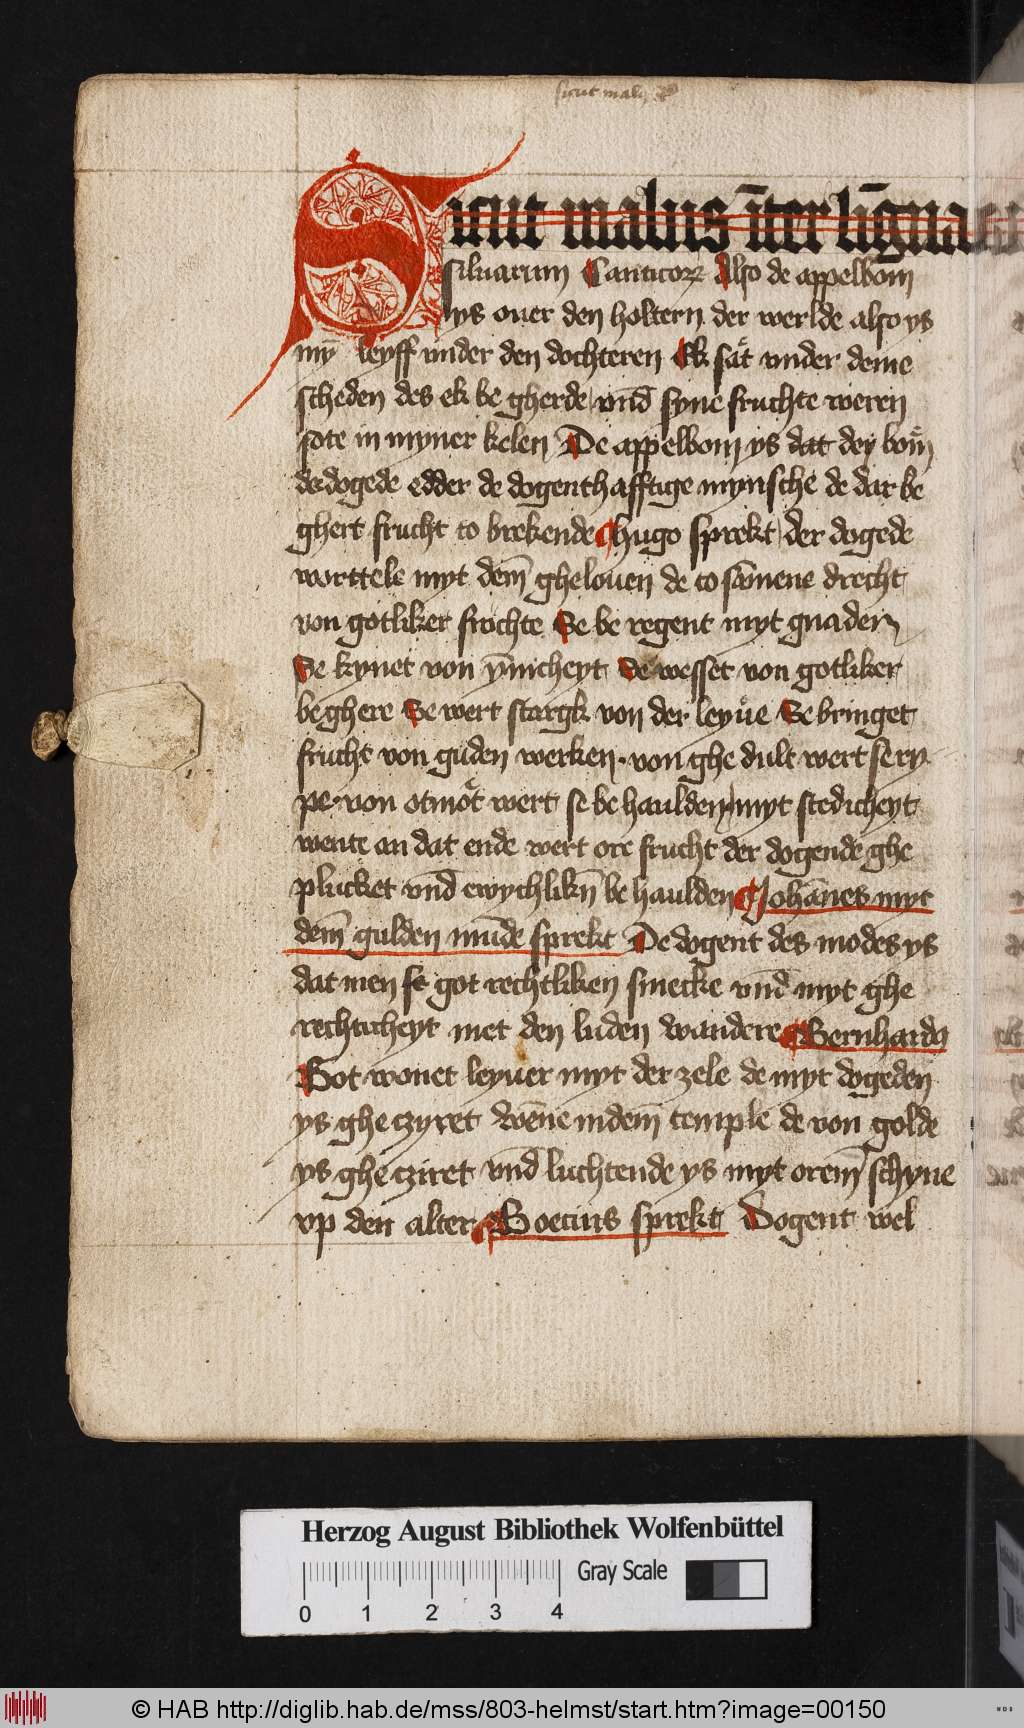 sicut malus
Sicut malus īter līgna
siluarum Canticorꝝ Also de appelbom
ys ouer den holtern der werlde also ys
mȳ leyff vnder den dochteren Ek sat vnder deme
scheden des ek be gherde vnd̄ syne fruchte weren
sote in myner kelen De appelbom ys dat dey bom
der dogede edder de dogenthafftige mynsche de dar be
ghert frucht to brekende Hugo sprekt der dogede
worttele myt dem̄ ghelouen de to sāmene drecht
von gotliker fruchte Se be regent myt gnaden
Se kynet von ȳnicheyt Se wesset von gotliker
beghere Se wert stargk von der leyue Se bringet
frucht von guden werken · von ghe dult wert se ry
pe · von otmot wert se be haulden myt stedicheyt
wente an dat ende wert ore frucht der dogende ghe
plucket vnd̄ ewychlikn̄ be haulden Johānes myt
dem̄ gulden mūde sprekt De dogent des modes ys
dat men se got rechtliken smecke vnd̄ myt ghe
rechticheyt met den luden wandere Bernhardꝯ
Got wonet leyuer myt der zele de myt dogeden
ys ghe czyret wēne in dem̄ temple de von golde
ys ghe cziret vnd̄ luchtende ys myt orem̄ schyne
vp den alter Boecius sprekt Dogent wel
Herzog August Bibliothek Wolfenbüttel
Gray Scale
0 1 2 3 4
© HAB http://diglib.hab.de/mss/803-helmst/start.htm?image=00150